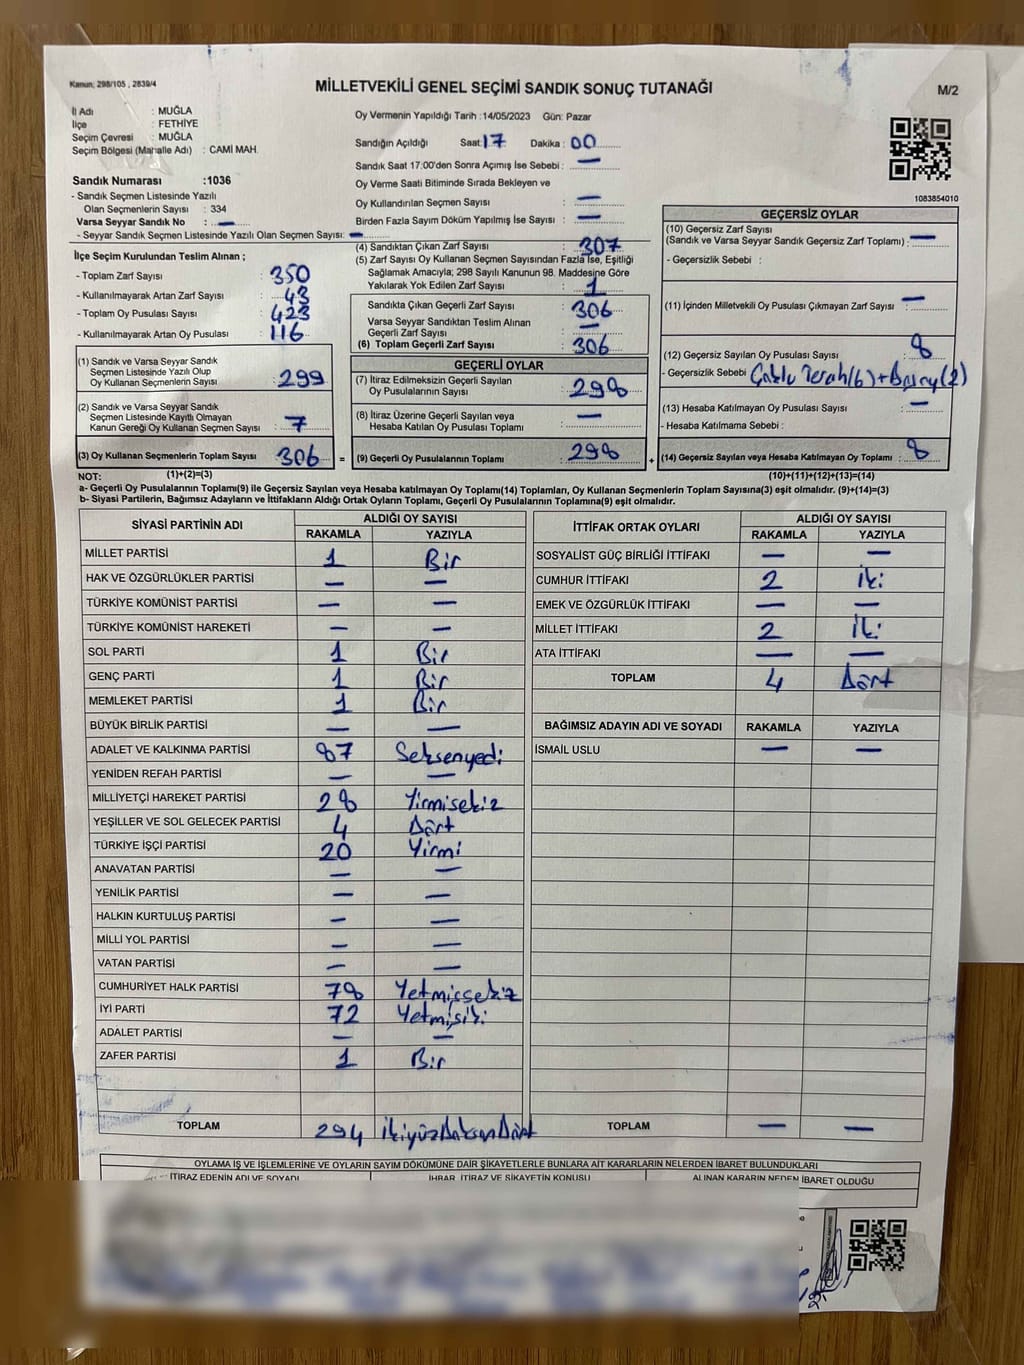 Kanun; 298/105 , 2839/4
MİLLETVEKİLİ GENEL SEÇİMİ SANDIK SONUÇ TUTANAĞI
M/2
İl Adı : MUĞLA
İlçe : FETHİYE
Seçim Çevresi : MUĞLA
Seçim Bölgesi (Mahalle Adı) : CAMİ MAH.
Oy Vermenin Yapıldığı Tarih :14/05/2023 Gün: Pazar
Sandığın Açıldığı Saat: 17 Dakika : 00
Sandık Saat 17:00'den Sonra Açımış İse Sebebi : —
Oy Verme Saati Bitiminde Sırada Bekleyen ve
Oy Kullandırılan Seçmen Sayısı : —
Birden Fazla Sayım Döküm Yapılmış İse Sayısı : —
Sandık Numarası :1036
- Sandık Seçmen Listesinde Yazılı
Olan Seçmenlerin Sayısı : 334
Varsa Seyyar Sandık No : —
- Seyyar Sandık Seçmen Listesinde Yazılı Olan Seçmen Sayısı: —
1083854010
İlçe Seçim Kurulundan Teslim Alınan ;
- Toplam Zarf Sayısı : 350
- Kullanılmayarak Artan Zarf Sayısı : 43
- Toplam Oy Pusulası Sayısı : 423
- Kullanılmayarak Artan Oy Pusulası : 116
(1) Sandık ve Varsa Seyyar Sandık
Seçmen Listesinde Yazılı Olup
Oy Kullanan Seçmenlerin Sayısı : 299
(2) Sandık ve Varsa Seyyar Sandık
Seçmen Listesinde Kayıtlı Olmayan
Kanun Gereği Oy Kullanan Seçmen Sayısı : 7
(3) Oy Kullanan Seçmenlerin Toplam Sayısı : 306 =
(4) Sandıktan Çıkan Zarf Sayısı : 307
(5) Zarf Sayısı Oy Kullanan Seçmen Sayısından Fazla İse, Eşitliği
Sağlamak Amacıyla; 298 Sayılı Kanunun 98. Maddesine Göre
Yakılarak Yok Edilen Zarf Sayısı : 1
Sandıkta Çıkan Geçerli Zarf Sayısı : 306
Varsa Seyyar Sandıktan Teslim Alınan
Geçerli Zarf Sayısı : —
(6) Toplam Geçerli Zarf Sayısı : 306
GEÇERLİ OYLAR
(7) İtiraz Edilmeksizin Geçerli Sayılan
Oy Pusulalarının Sayısı : 298
(8) İtiraz Üzerine Geçerli Sayılan veya
Hesaba Katılan Oy Pusulası Toplamı : —
(9) Geçerli Oy Pusulalarının Toplamı : 298 +
GEÇERSİZ OYLAR
(10) Geçersiz Zarf Sayısı
(Sandık ve Varsa Seyyar Sandık Geçersiz Zarf Toplamı) : —
- Geçersizlik Sebebi :
(11) İçinden Milletvekili Oy Pusulası Çıkmayan Zarf Sayısı : —
(12) Geçersiz Sayılan Oy Pusulası Sayısı : 8
- Geçersizlik Sebebi : Çoklu Tercih(6)+Boş oy(2)
(13) Hesaba Katılmayan Oy Pusulası Sayısı : —
- Hesaba Katılmama Sebebi :
(14) Geçersiz Sayılan veya Hesaba Katılmayan Oy Toplamı : 8
NOT: (1)+(2)=(3) (10)+(11)+(12)+(13)=(14)
a- Geçerli Oy Pusulalarının Toplamı(9) ile Geçersiz Sayılan veya Hesaba katılmayan Oy Toplamı(14) Toplamları, Oy Kullanan Seçmenlerin Toplam Sayısına(3) eşit olmalıdır. (9)+(14)=(3)
b- Siyasi Partilerin, Bağımsız Adayların ve İttifakların Aldığı Ortak Oyların Toplamı, Geçerli Oy Pusulalarının Toplamına(9) eşit olmalıdır.
SİYASİ PARTİNİN ADI ALDIĞI OY SAYISI
RAKAMLA YAZIYLA
MİLLET PARTİSİ 1 Bir
HAK VE ÖZGÜRLÜKLER PARTİSİ — —
TÜRKİYE KOMÜNİST PARTİSİ — —
TÜRKİYE KOMÜNİST HAREKETİ — —
SOL PARTİ 1 Bir
GENÇ PARTİ 1 Bir
MEMLEKET PARTİSİ 1 Bir
BÜYÜK BİRLİK PARTİSİ — —
ADALET VE KALKINMA PARTİSİ 87 Seksenyedi
YENİDEN REFAH PARTİSİ — —
MİLLİYETÇİ HAREKET PARTİSİ 28 Yirmisekiz
YEŞİLLER VE SOL GELECEK PARTİSİ 4 Dört
TÜRKİYE İŞÇİ PARTİSİ 20 Yirmi
ANAVATAN PARTİSİ — —
YENİLİK PARTİSİ — —
HALKIN KURTULUŞ PARTİSİ — —
MİLLİ YOL PARTİSİ — —
VATAN PARTİSİ — —
CUMHURİYET HALK PARTİSİ 78 Yetmişsekiz
İYİ PARTİ 72 Yetmişiki
ADALET PARTİSİ — —
ZAFER PARTİSİ 1 Bir
TOPLAM 294 İkiyüzDoksanDört
İTTİFAK ORTAK OYLARI ALDIĞI OY SAYISI
RAKAMLA YAZIYLA
SOSYALİST GÜÇ BİRLİĞİ İTTİFAKI — —
CUMHUR İTTİFAKI 2 iki
EMEK VE ÖZGÜRLÜK İTTİFAKI — —
MİLLET İTTİFAKI 2 İki
ATA İTTİFAKI — —
TOPLAM 4 Dört
BAĞIMSIZ ADAYIN ADI VE SOYADI RAKAMLA YAZIYLA
İSMAİL USLU — —
TOPLAM — —
OYLAMA İŞ VE İŞLEMLERİNE VE OYLARIN SAYIM DÖKÜMÜNE DAİR ŞİKAYETLERLE BUNLARA AİT KARARLARIN NELERDEN İBARET BULUNDUKLARI
İTİRAZ EDENİN ADI VE SOYADI İHBAR, İTİRAZ VE ŞİKAYETİN KONUSU ALINAN KARARIN NEDEN İBARET OLDUĞU